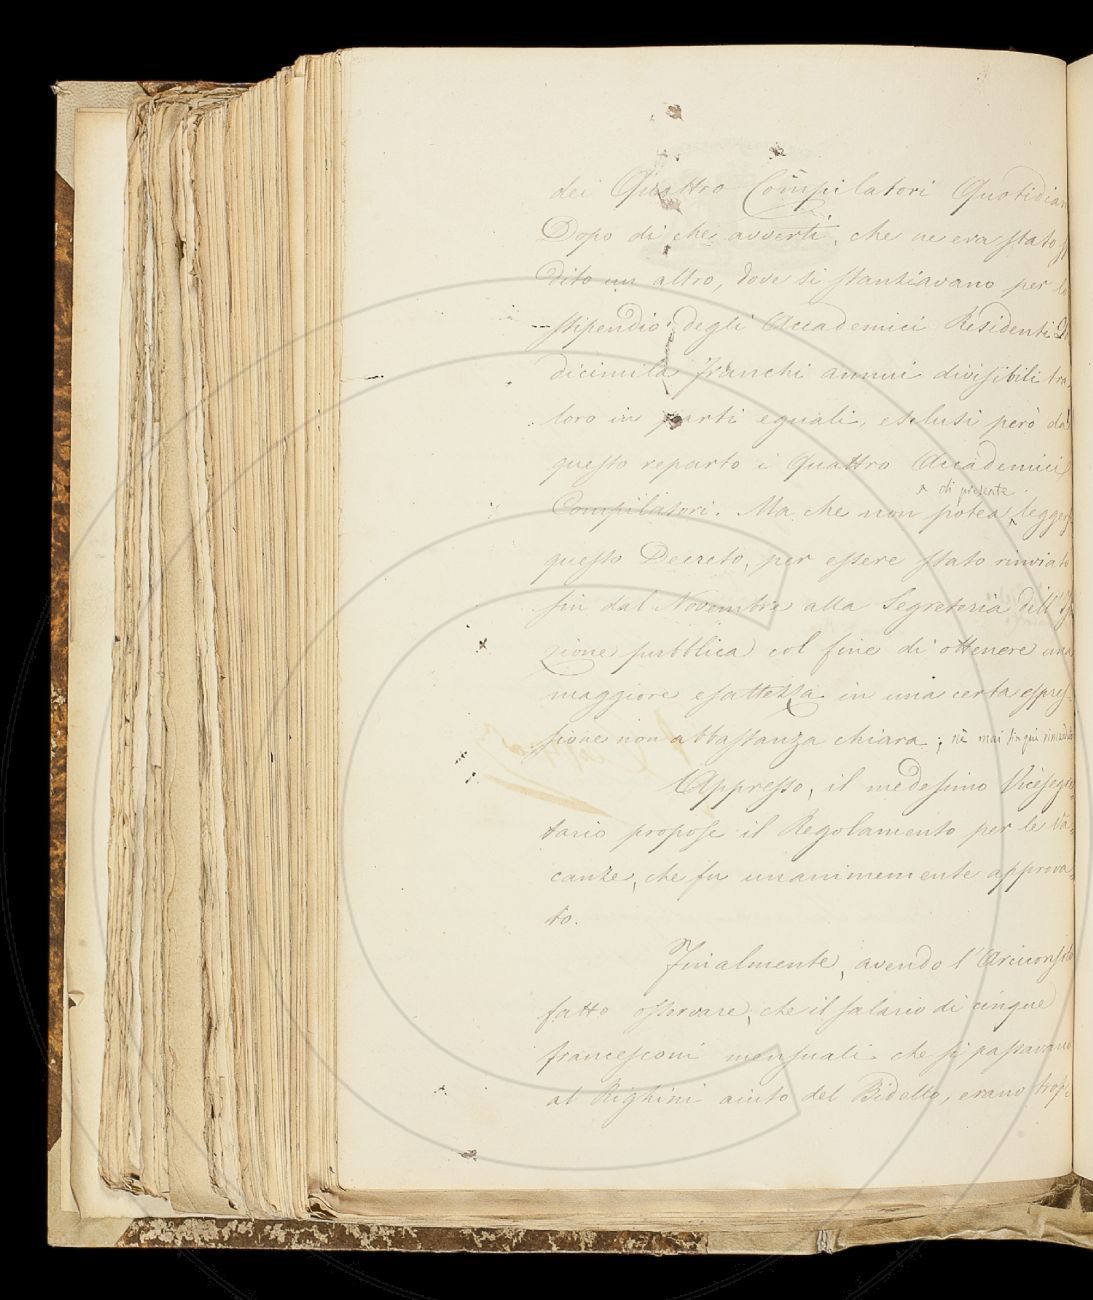 dei Quattro Compilatori Quotidian
Dopo di che avvertì, che ne era stato
dito un altro, dove si stanziavano per lo
stipendio degli Accademici Residenti
dicimila franchi annui divisibili tra
loro in parti eguali, esclusi però da
questo reparto i quattro Accademici
Compilatori. Ma che non potea ^ di presente leggers
questo Decreto, per essere stato rinviato
fin dal Novembre alla Segreteria dell'I
zione pubblica col fine di ottenere una
maggiore esattezza in una certa espres-
sione non abbastanza chiara; nè mai fin qui
Appresso, il medesimo Vicesegre-
tario propose il Regolamento per le Va-
canze, che fu unanimemente approva-
to.
Finalmente, avendo l'Arciconsolo
fatto osservare, che il salario di cinque
francesconi mensuali che si passavano
al Righini aiuto del Bidello, erano trop-